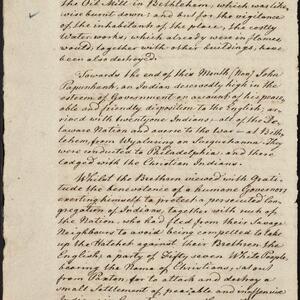 the Oil Mill in Bethlehem, which was like-
wise burnt down; and but for the vigilance
of the inhabitants of the place, the costly
Waterworks, which already were in flames
would, together with other buildings, have
been also destroyed.
Towards the end of this Month (Nov) John
Papunhank, an Indian deservedly high in the
esteem of Government on account of his peace,
able and friendly disposition to the English, ar-
rived with twentyone Indians, all of the De-
laware Nation and averse to the war — at Beth-
lehem, from Wyalusing on Susquehanna. They
were conducted to Philadelphia, and there
lodged with the Christian Indians.
Whilst the Brethren viewed with Grati-
tude the benevolence of a humane Governor,
exerting himself to protect a persecuted Con-
gregation of Indians, together with such of
the Nation who had fled from their Savage
Neighbours to avoid being compelled to take
up the Hatchet against their Brethren the
English; a party of Fifty seven White People,
bearing the Name of Christians, set out
from Paxton for to attack and destroy a
small Settlement of peaceable and inoffensive